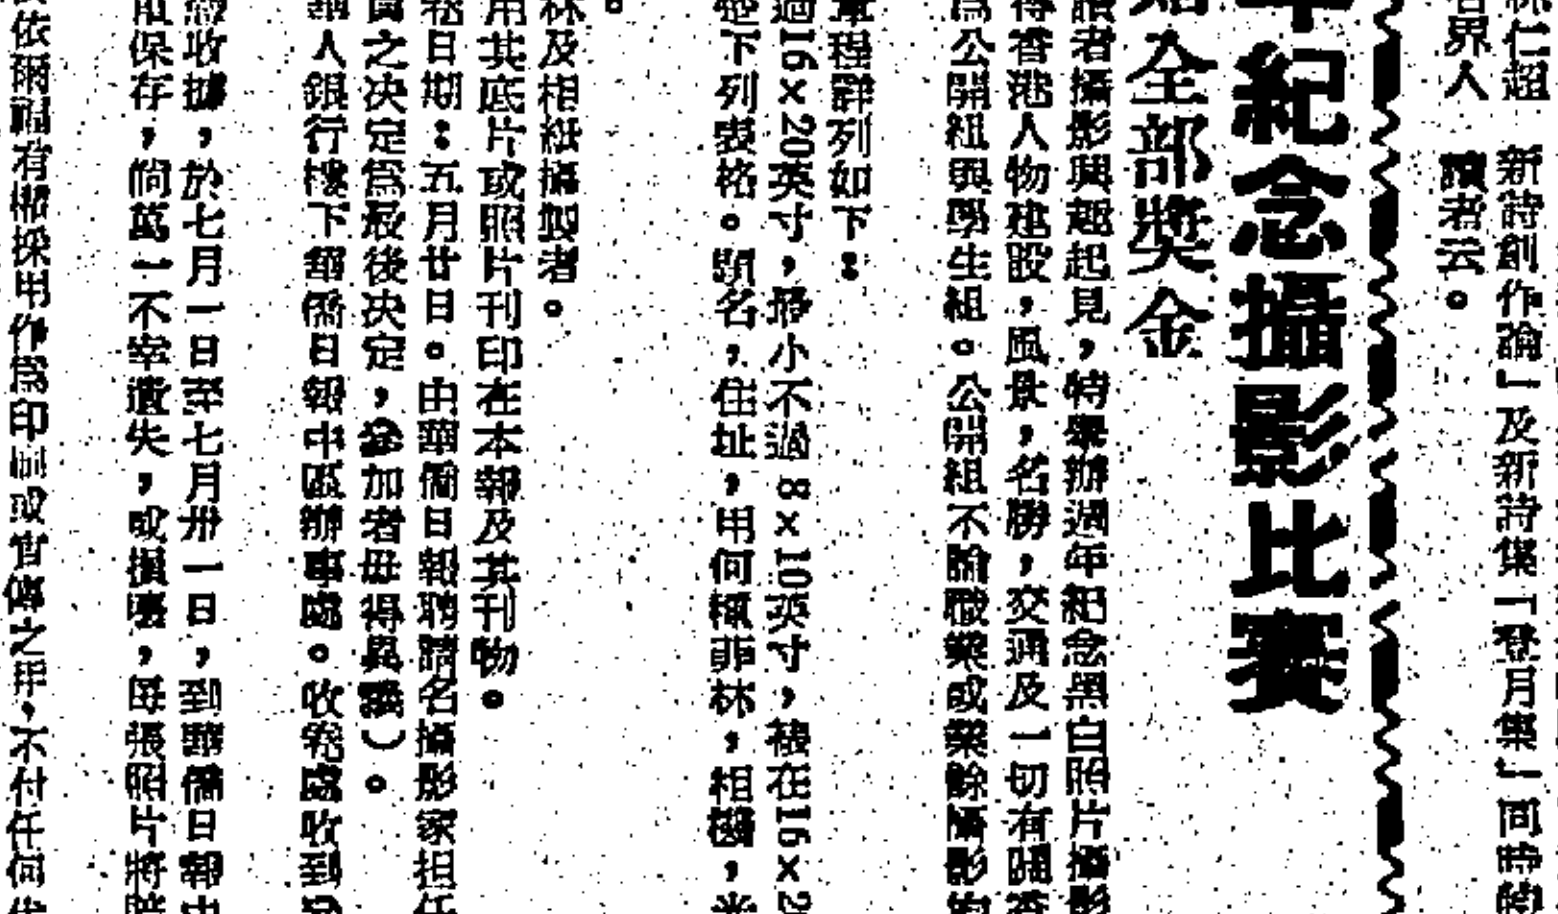 仁超　新詩創作論」及新詩集「登月集」同時
各界人　讀者云。
年紀念攝影比賽
全部獎金
讀者攝影興趣起見，特舉辦過年紀念黑白照片攝影
得香港人物建設，風景，名勝，交通及一切有關香
為公開組與學生組。公開組不論職業或業餘攝影
章程詳列如下：
過16×20英寸，最小不過8×10英寸，裱在16×2
下列表格。題名，住址，用何種菲林，相機，光
林及相紙攝製者。
用其底片或照片刊印在本報及其刊物。
日期：五月廿日。由華僑日報聘請名攝影家担任
之決定為最後決定，參加者毋得異議）。
華人銀行樓下華僑日報中區辦事處。收発處收到
收據，於七月一日至七月卅一日，到華僑日報中
保存，倘萬一不幸遺失，或損壞，每張照片將賠
依爾福有權採用作為印刷或宣傳之用，不付任何